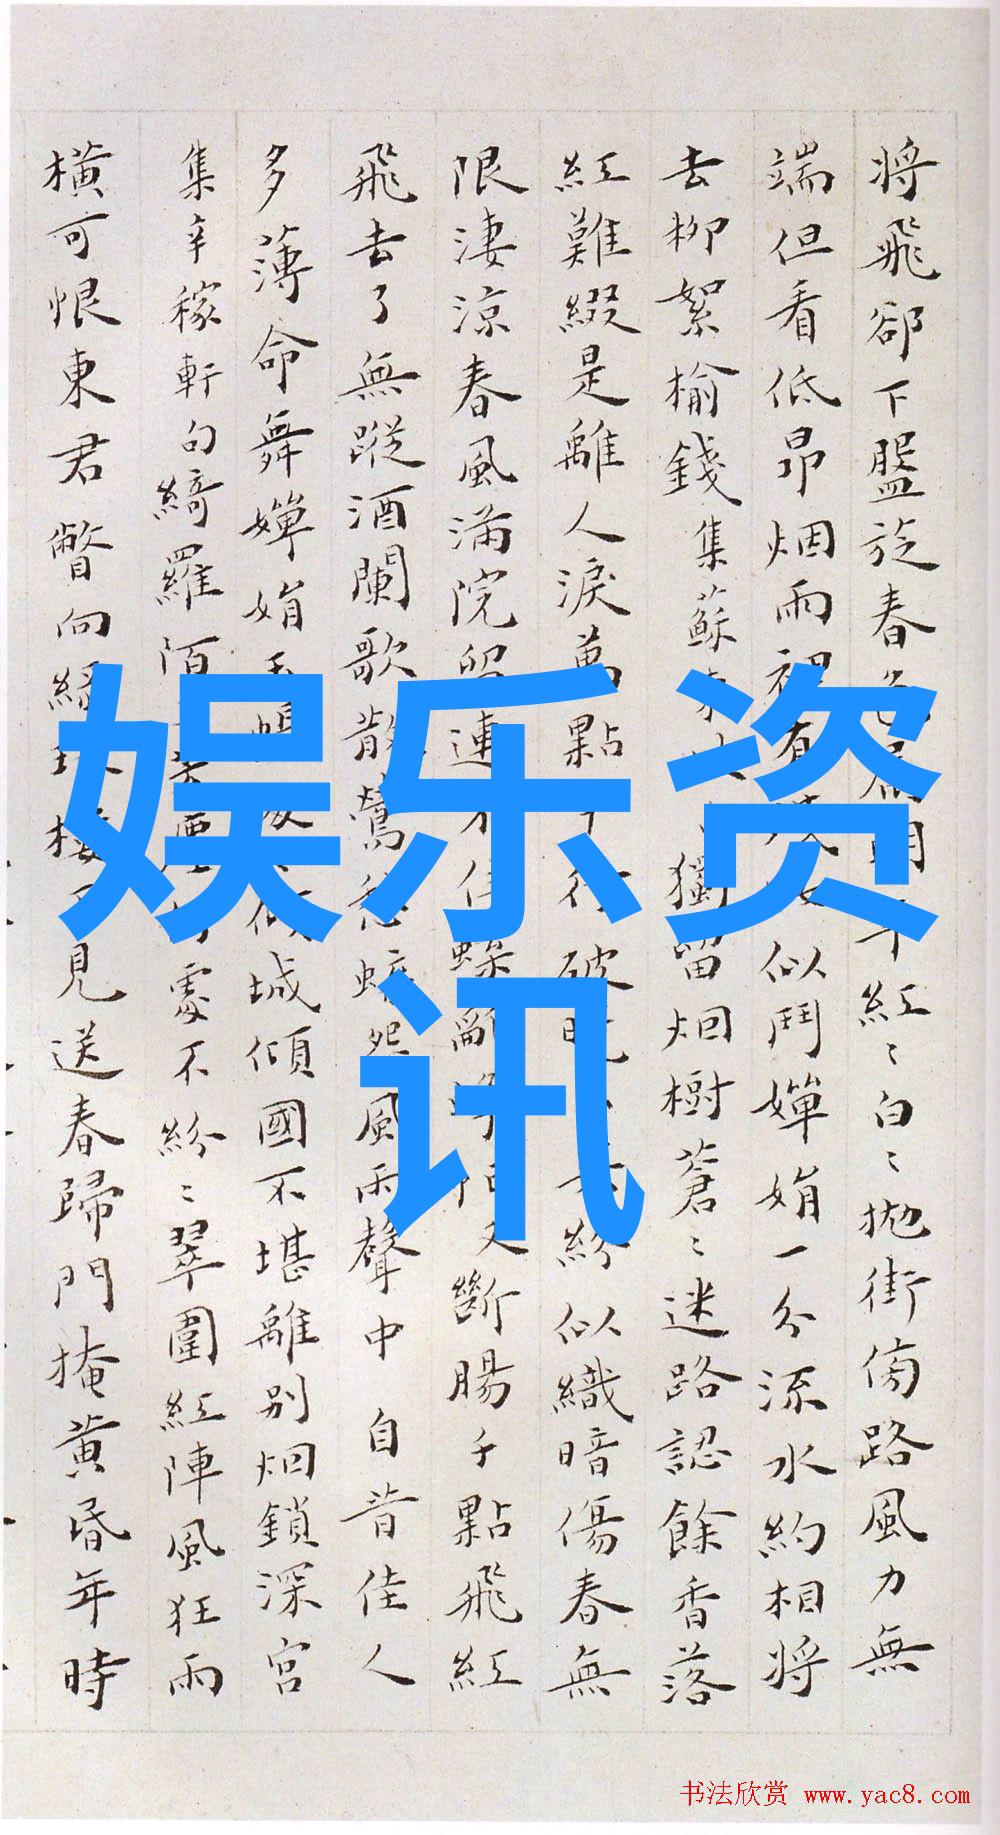 將飛卻下盤旋春色
紅〻白〻拋街傍路風力無
端但看低昂烟雨初有
似鬥嬋娟一分流水約相將
去柳絮榆錢集蘇
獨留烟樹蒼〻迷路認餘香落
紅難綴是離人淚萬點
破
紛似織暗傷春無
限淒涼春風滿院留連
住蝶
又斷腸千點飛紅
飛去了無蹤酒闌歌散鶯
怨風雨聲中 自昔佳人
多薄命舞嬋娟
傾城傾國不堪離別烟鎖深宮
集辛稼軒句綺羅陌
處不紛〻翠圍紅陣風狂雨
橫可恨東君瞥向緣
樓
見送春歸門掩黃昏年時
娱乐资
讯
书法欣赏 www.yac8.com